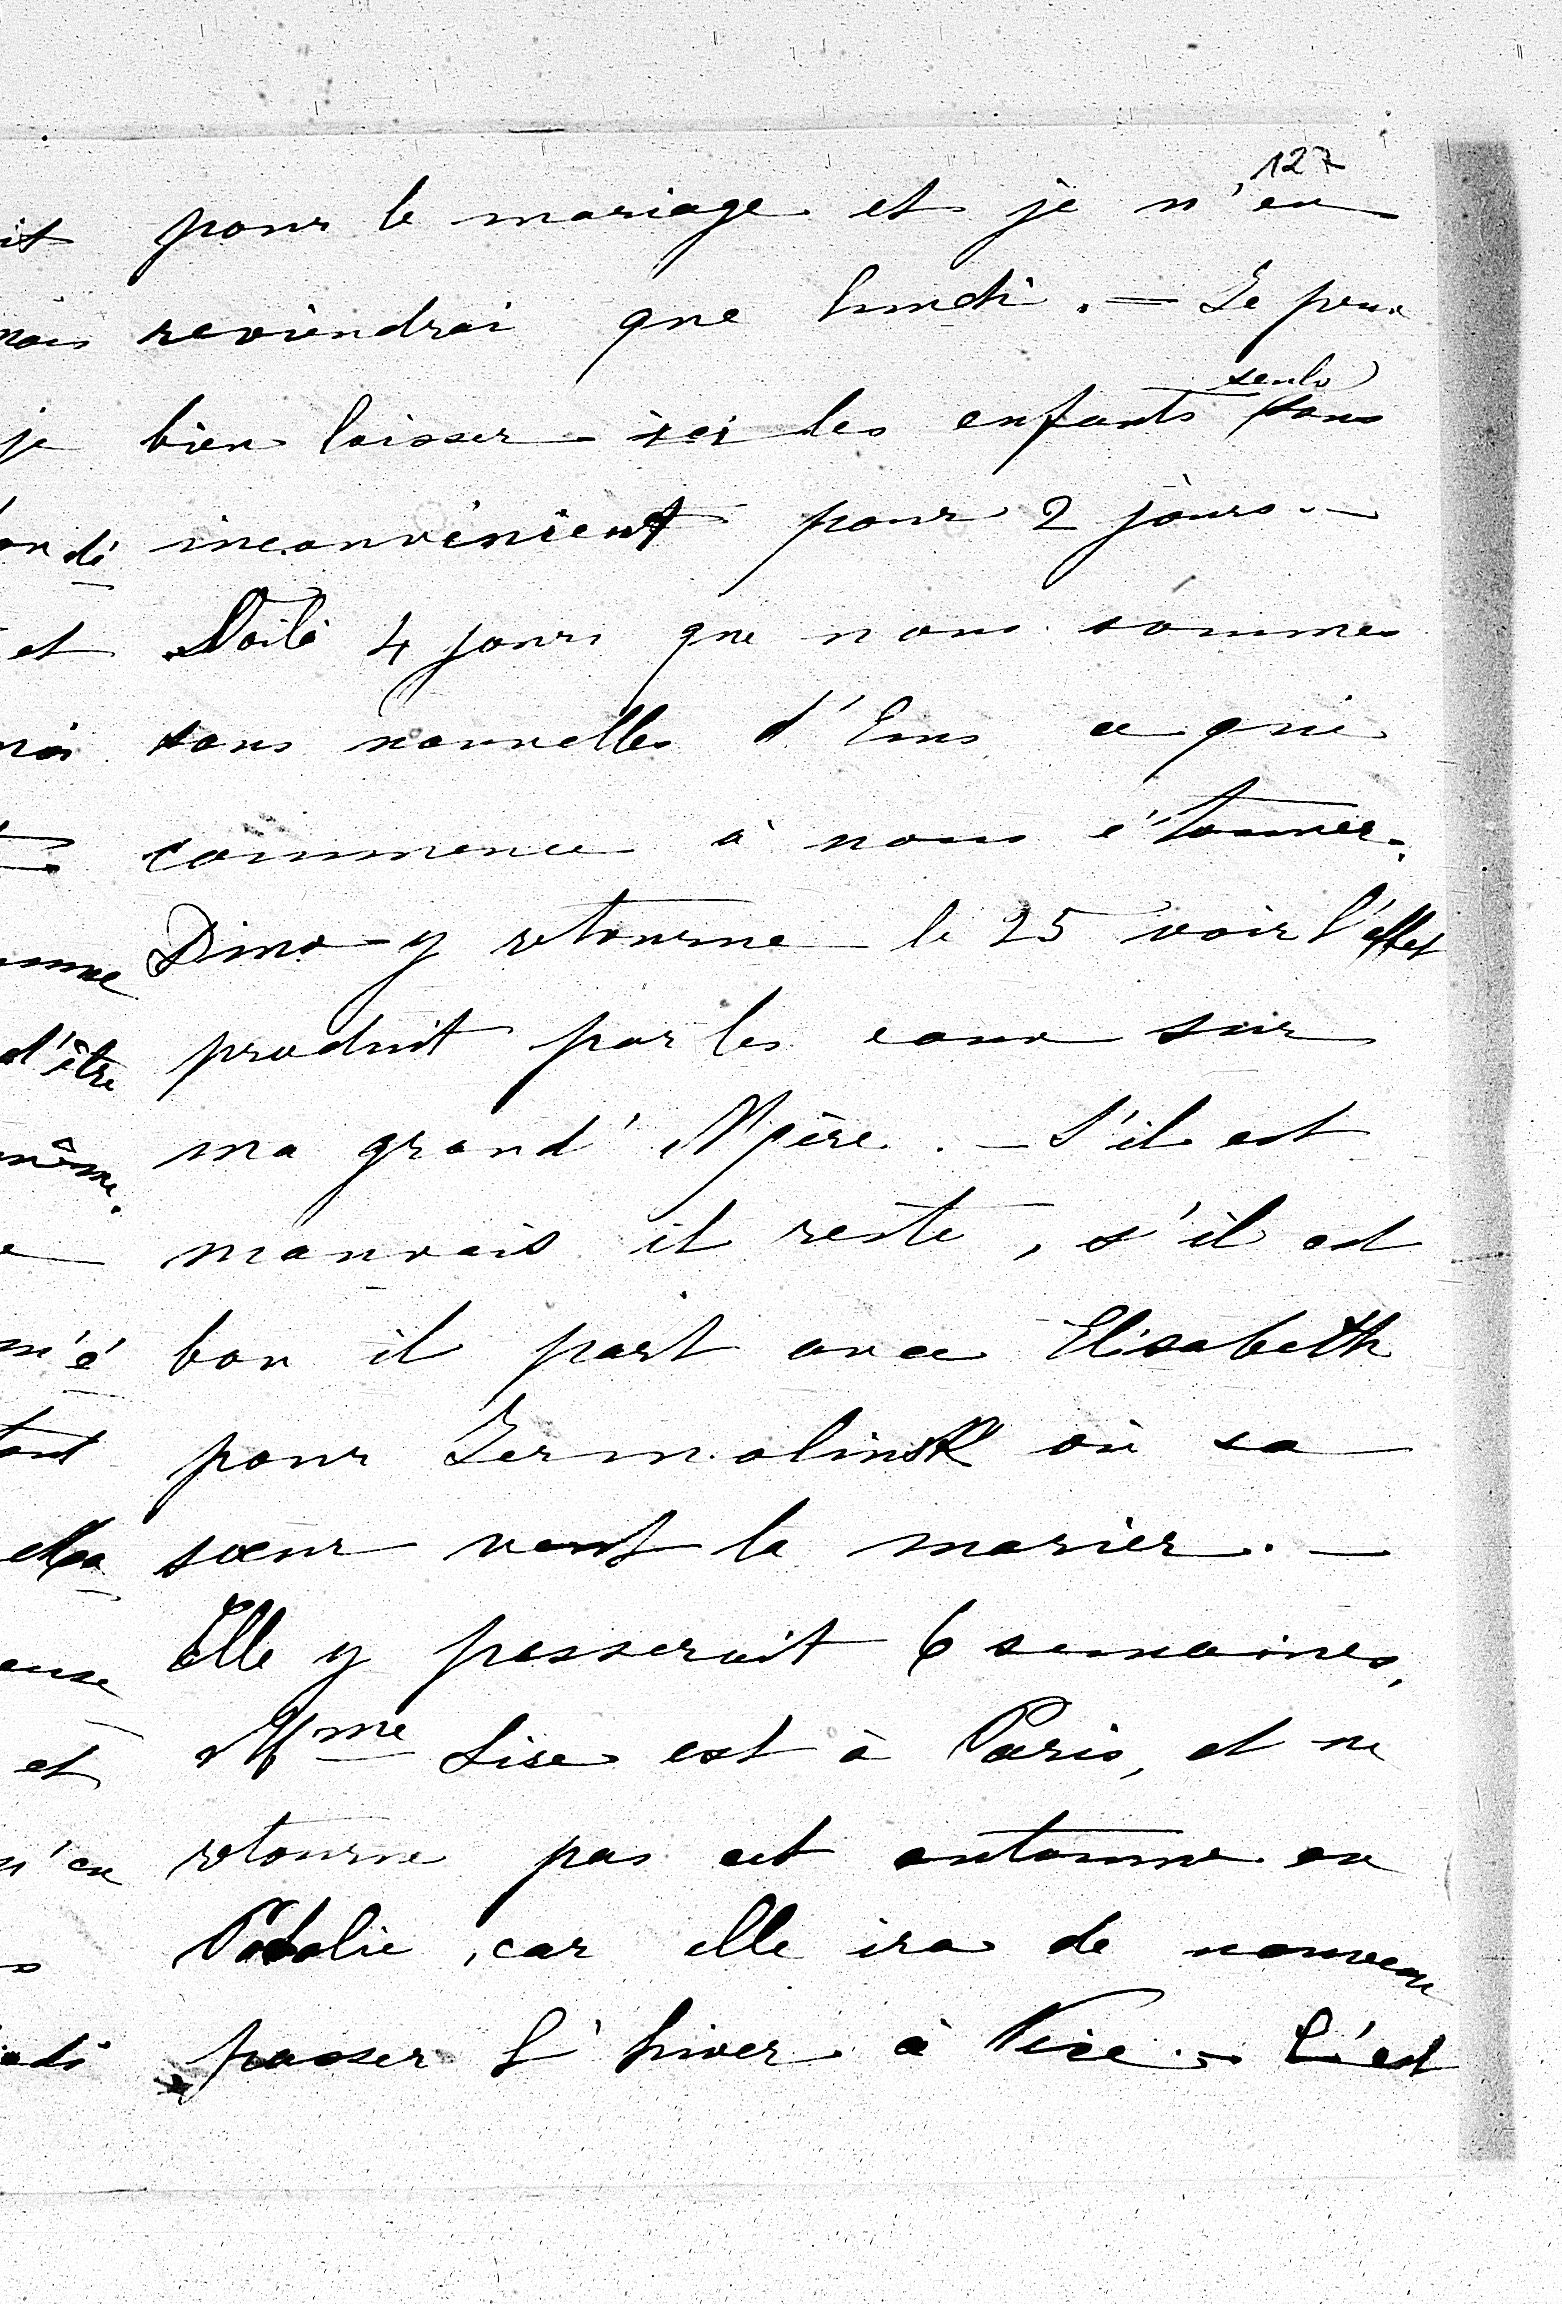 127
pour le mariage et je n'en
reviendrai que lundi. — Je peux
seuls
bien laisser ici les enfants sans
inconvénient pour 2 jours. —
Voilà 4 jours que nous sommes
sans nouvelles d'Ems ce qui
commence à nous étonner.
Dino y retourne le 25 voir l'effet
produit par les eaux sur
ma grand' Mère. — S'il est
mauvais il reste, s'il est
bon il part avec Elisabeth
pour Jermolinsk où sa
sœur veut la marier. —
Elle y passerait 6 semaines,
Mme Lise est à Paris, et ne
retourne pas cet automne en
Podolie, car elle ira de nouveau
passer l'hiver à Nice. — C'est
it
je
et
d'être
même.
m'é
et
n'en